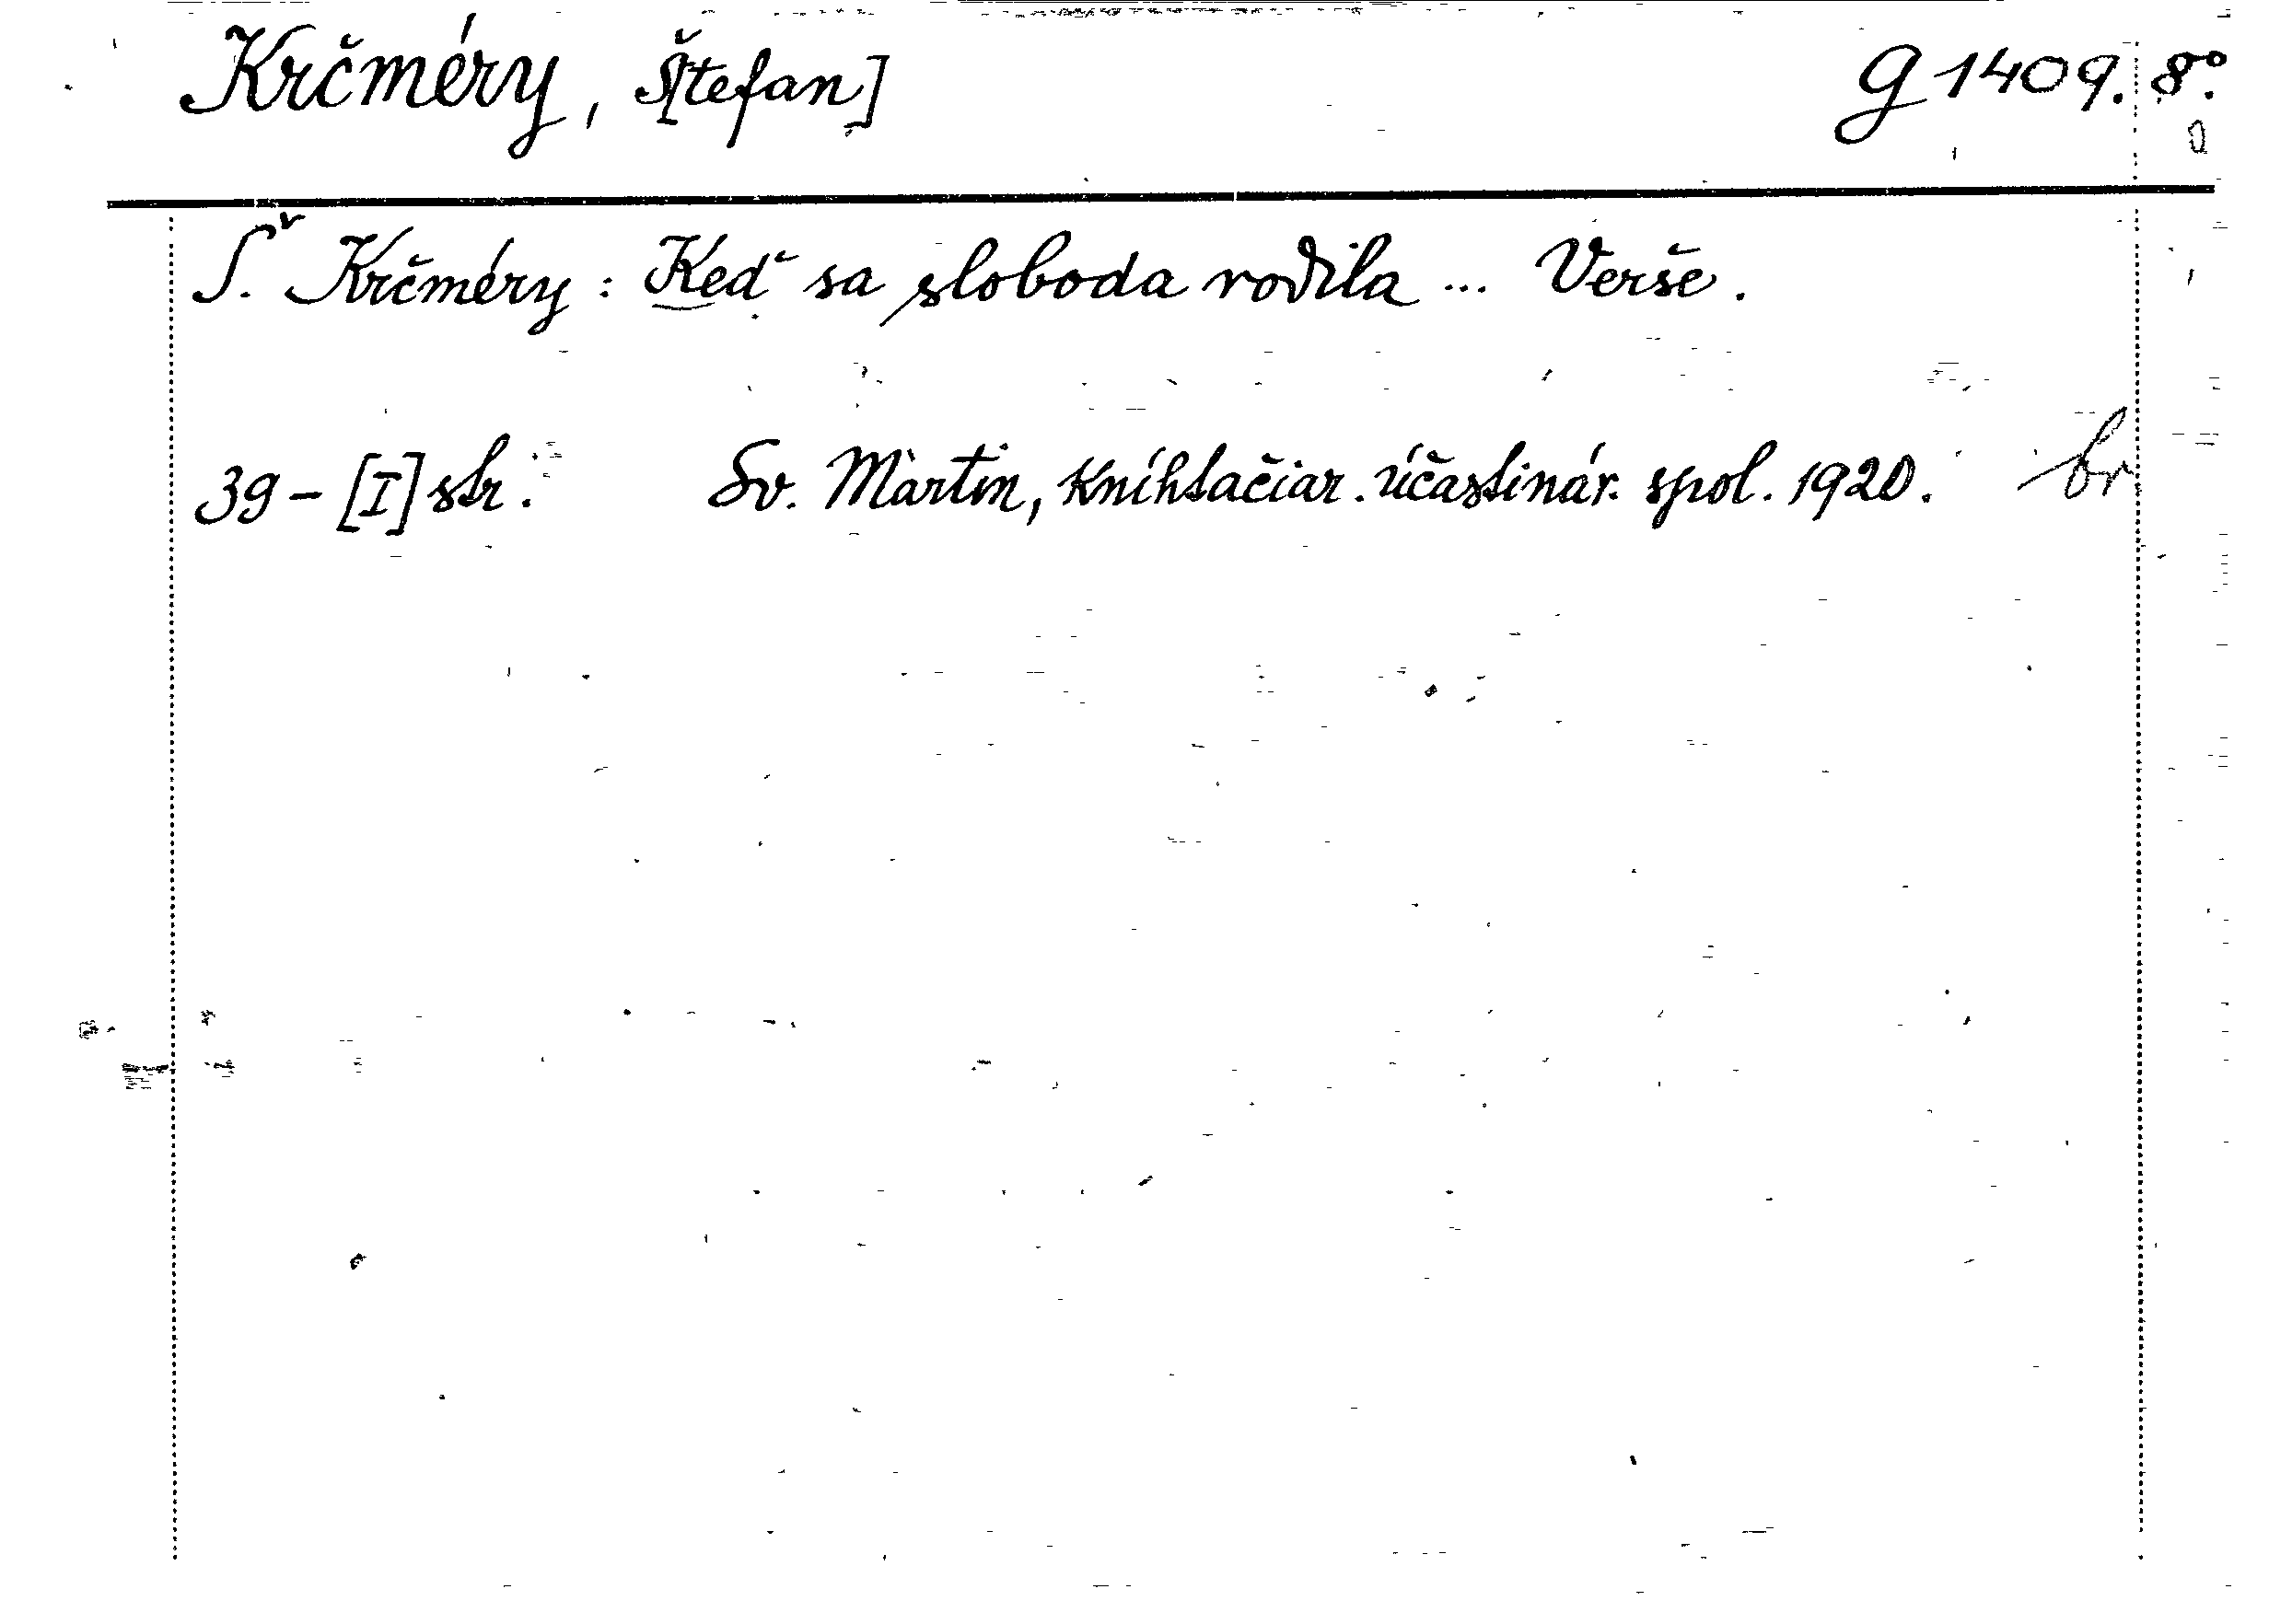 Krčméry, Š[tefan] G 1409. 8°.
Š. Krčméry: Keď sa sloboda rodila ... Verše.
39 - [I] str. Sv. Martin, Kníhtlačiar. účastinár. spol. 1920. br